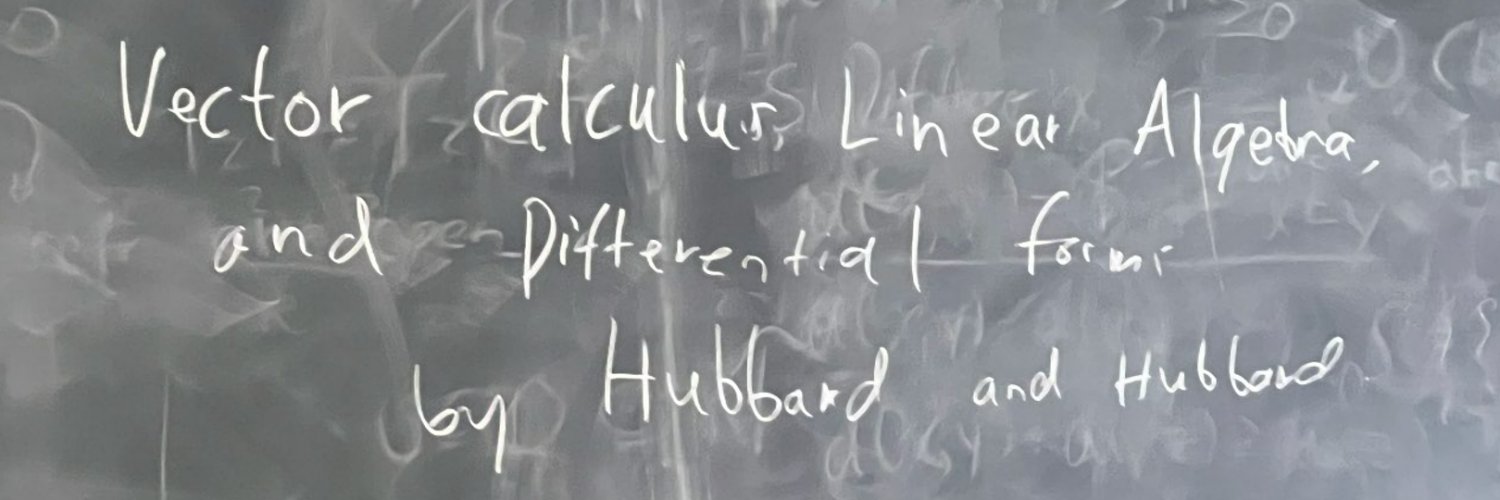 Vector calculus, Linear Algebra,
and Differential forms
by Hubbard and Hubbard